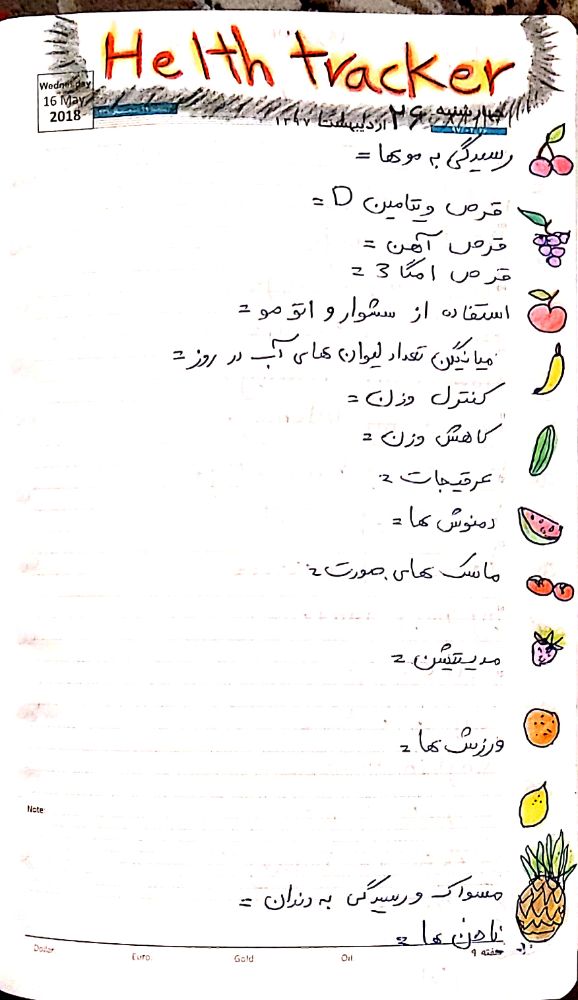 Helth tracker
Wednesday
16 May
2018
چهارشنبه ۲۶ اردیبهشت ۱۳۹۷
رسیدگی به موها =
قرص ویتامین D =
قرص آهن =
قرص امگا 3 =
استفاده از سشوار و اتو مو =
میانگین تعداد لیوان های آب در روز =
کنترل وزن =
کاهش وزن =
عرقیجات =
دمنوش ها =
ماسک های صورت =
مدیتیشن =
ورزش ها =
Note:
مسواک و رسیدگی به دندان =
ناخن ها =
Dollar Euro Gold Oil هفته ۹